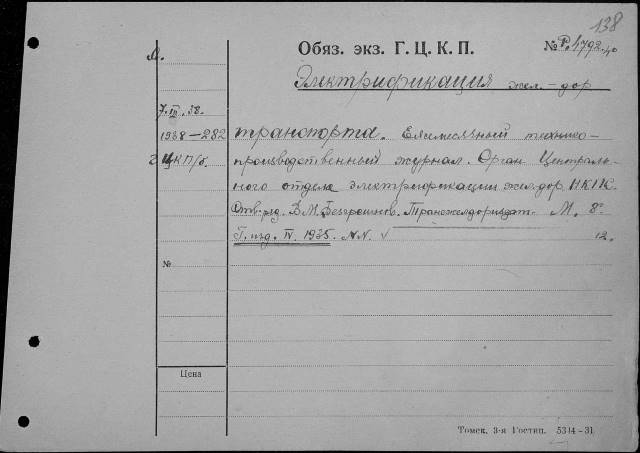 138
Обяз. экз. Г. Ц. К. П. № Р. 4792.40
Л.
Электрификация жел.-дор
7.III.38.
1938—282 транспорта. Ежемесячный технико-
2 ЦКП/б. производственный журнал. Орган Централь-
ного отдела электрификации жел.дор. НКПС.
Отв. ред. В.М. . Трансжелдориздат. М. 8°
Г. изд. IV. 1935. NN. 12.
№
Цена
Томск. 3-я Гостип. 5314-31